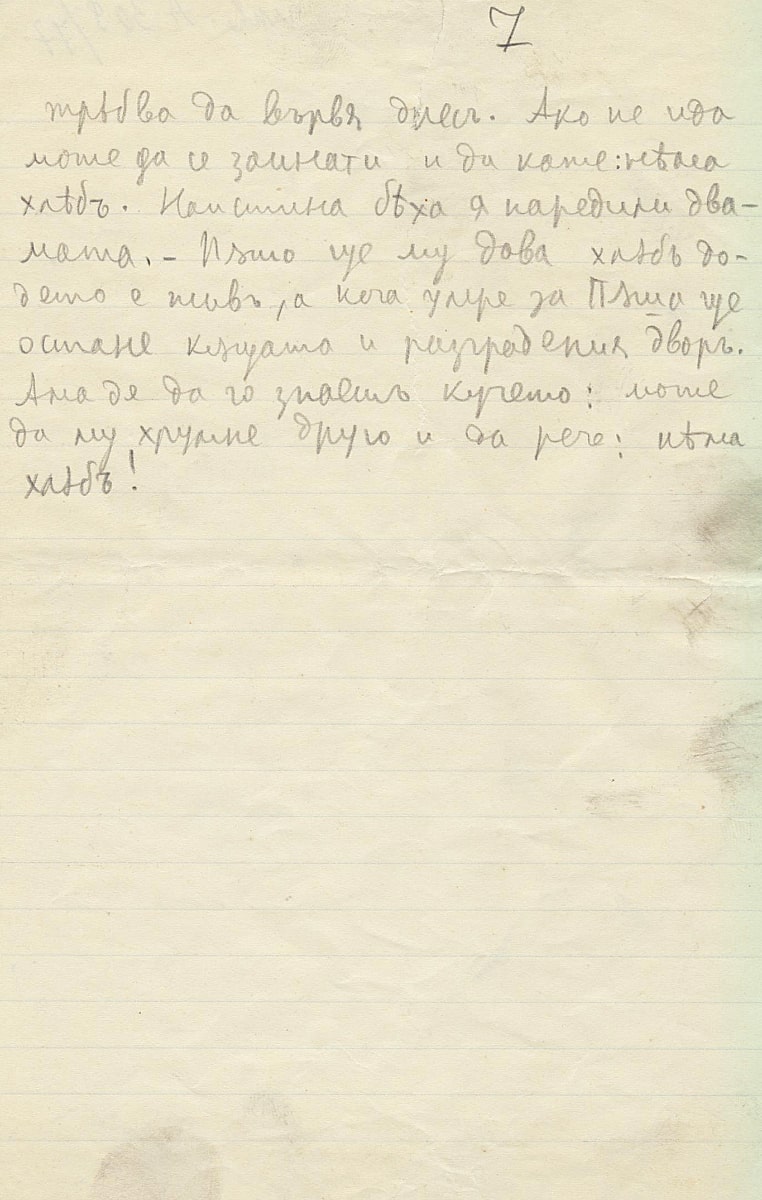 7
трѣбва да вървя днесъ. Ако не ида
може да се заинати и да каже: нѣма
хлѣбъ. Наистина бѣха я наредили два-
мата. – Пѣшо ще му дава хлѣбъ до-
дето е живъ, а кога умре за Пѣша ще
остане кѫщата и разградения дворъ.
Ама де да го знаешъ кучето: може
да му хрумне друго и да рече: нѣма
хлѣбъ!